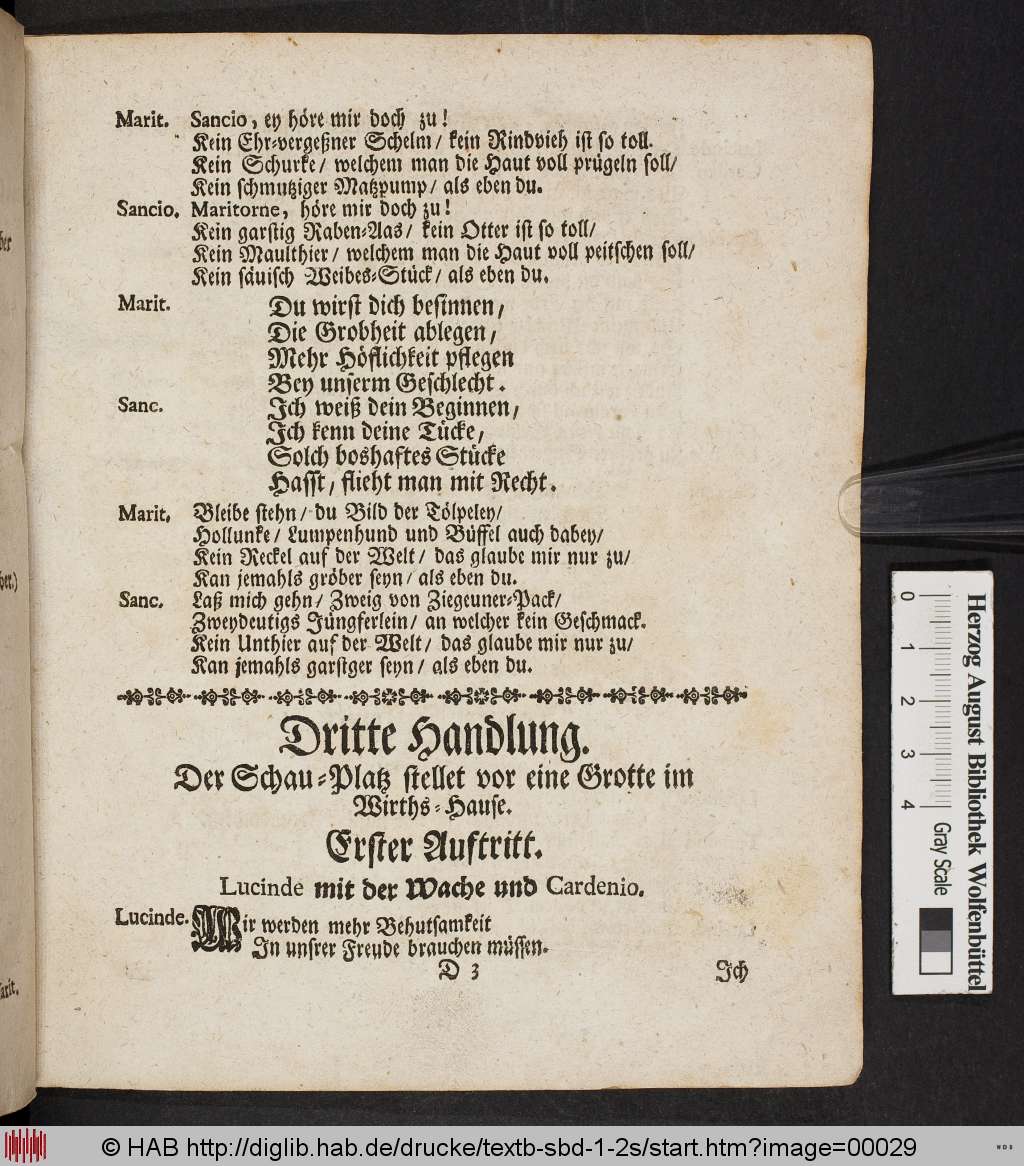 Marit. Sancio, ey höre mir doch zu!
Kein Ehr-vergeßner Schelm/ kein Rindvieh ist so toll.
Kein Schurke/ welchem man die Haut voll prügeln soll/
Kein schmutziger Matzpump/ als eben du.
Sancio. Maritorne, höre mir doch zu!
Kein garstig Raben-Aas/ kein Otter ist so toll/
Kein Maulthier/ welchem man die Haut voll peitschen soll/
Kein säuisch Weibes-Stück/ als eben du.
Marit. Du wirst dich besinnen/
Die Grobheit ablegen/
Mehr Höflichkeit pflegen
Bey unserm Geschlecht.
Sanc. Ich weiß dein Beginnen/
Ich kenn deine Tücke/
Solch boshaftes Stücke
Hasst/ flieht man mit Recht.
Marit. Bleibe stehn/ du Bild der Tölpeley/
Hollunke/ Lumpenhund und Büffel auch dabey/
Kein Reckel auf der Welt/ das glaube mir nur zu/
Kan jemahls gröber seyn/ als eben du.
Sanc. Laß mich gehn/ Zweig von Ziegeuner-Pack/
Zweydeutigs Jüngferlein/ an welcher kein Geschmack.
Kein Unthier auf der Welt/ das glaube mir nur zu/
Kan jemahls garstger seyn/ als eben du.
Dritte Handlung.
Der Schau-Platz stellet vor eine Grotte im
Wirths-Hause.
Erster Auftritt.
Lucinde mit der Wache und Cardenio.
Lucinde. Wir werden mehr Behutsamkeit
In unsrer Freude brauchen müssen.
D 3 Ich
Herzog August Bibliothek Wolfenbüttel
0 1 2 3 4 Gray Scale
© HAB http://diglib.hab.de/drucke/textb-sbd-1-2s/start.htm?image=00029